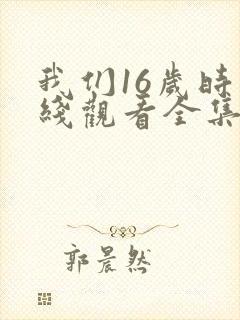 我们16歲時
綫觀看全集
郭晨然